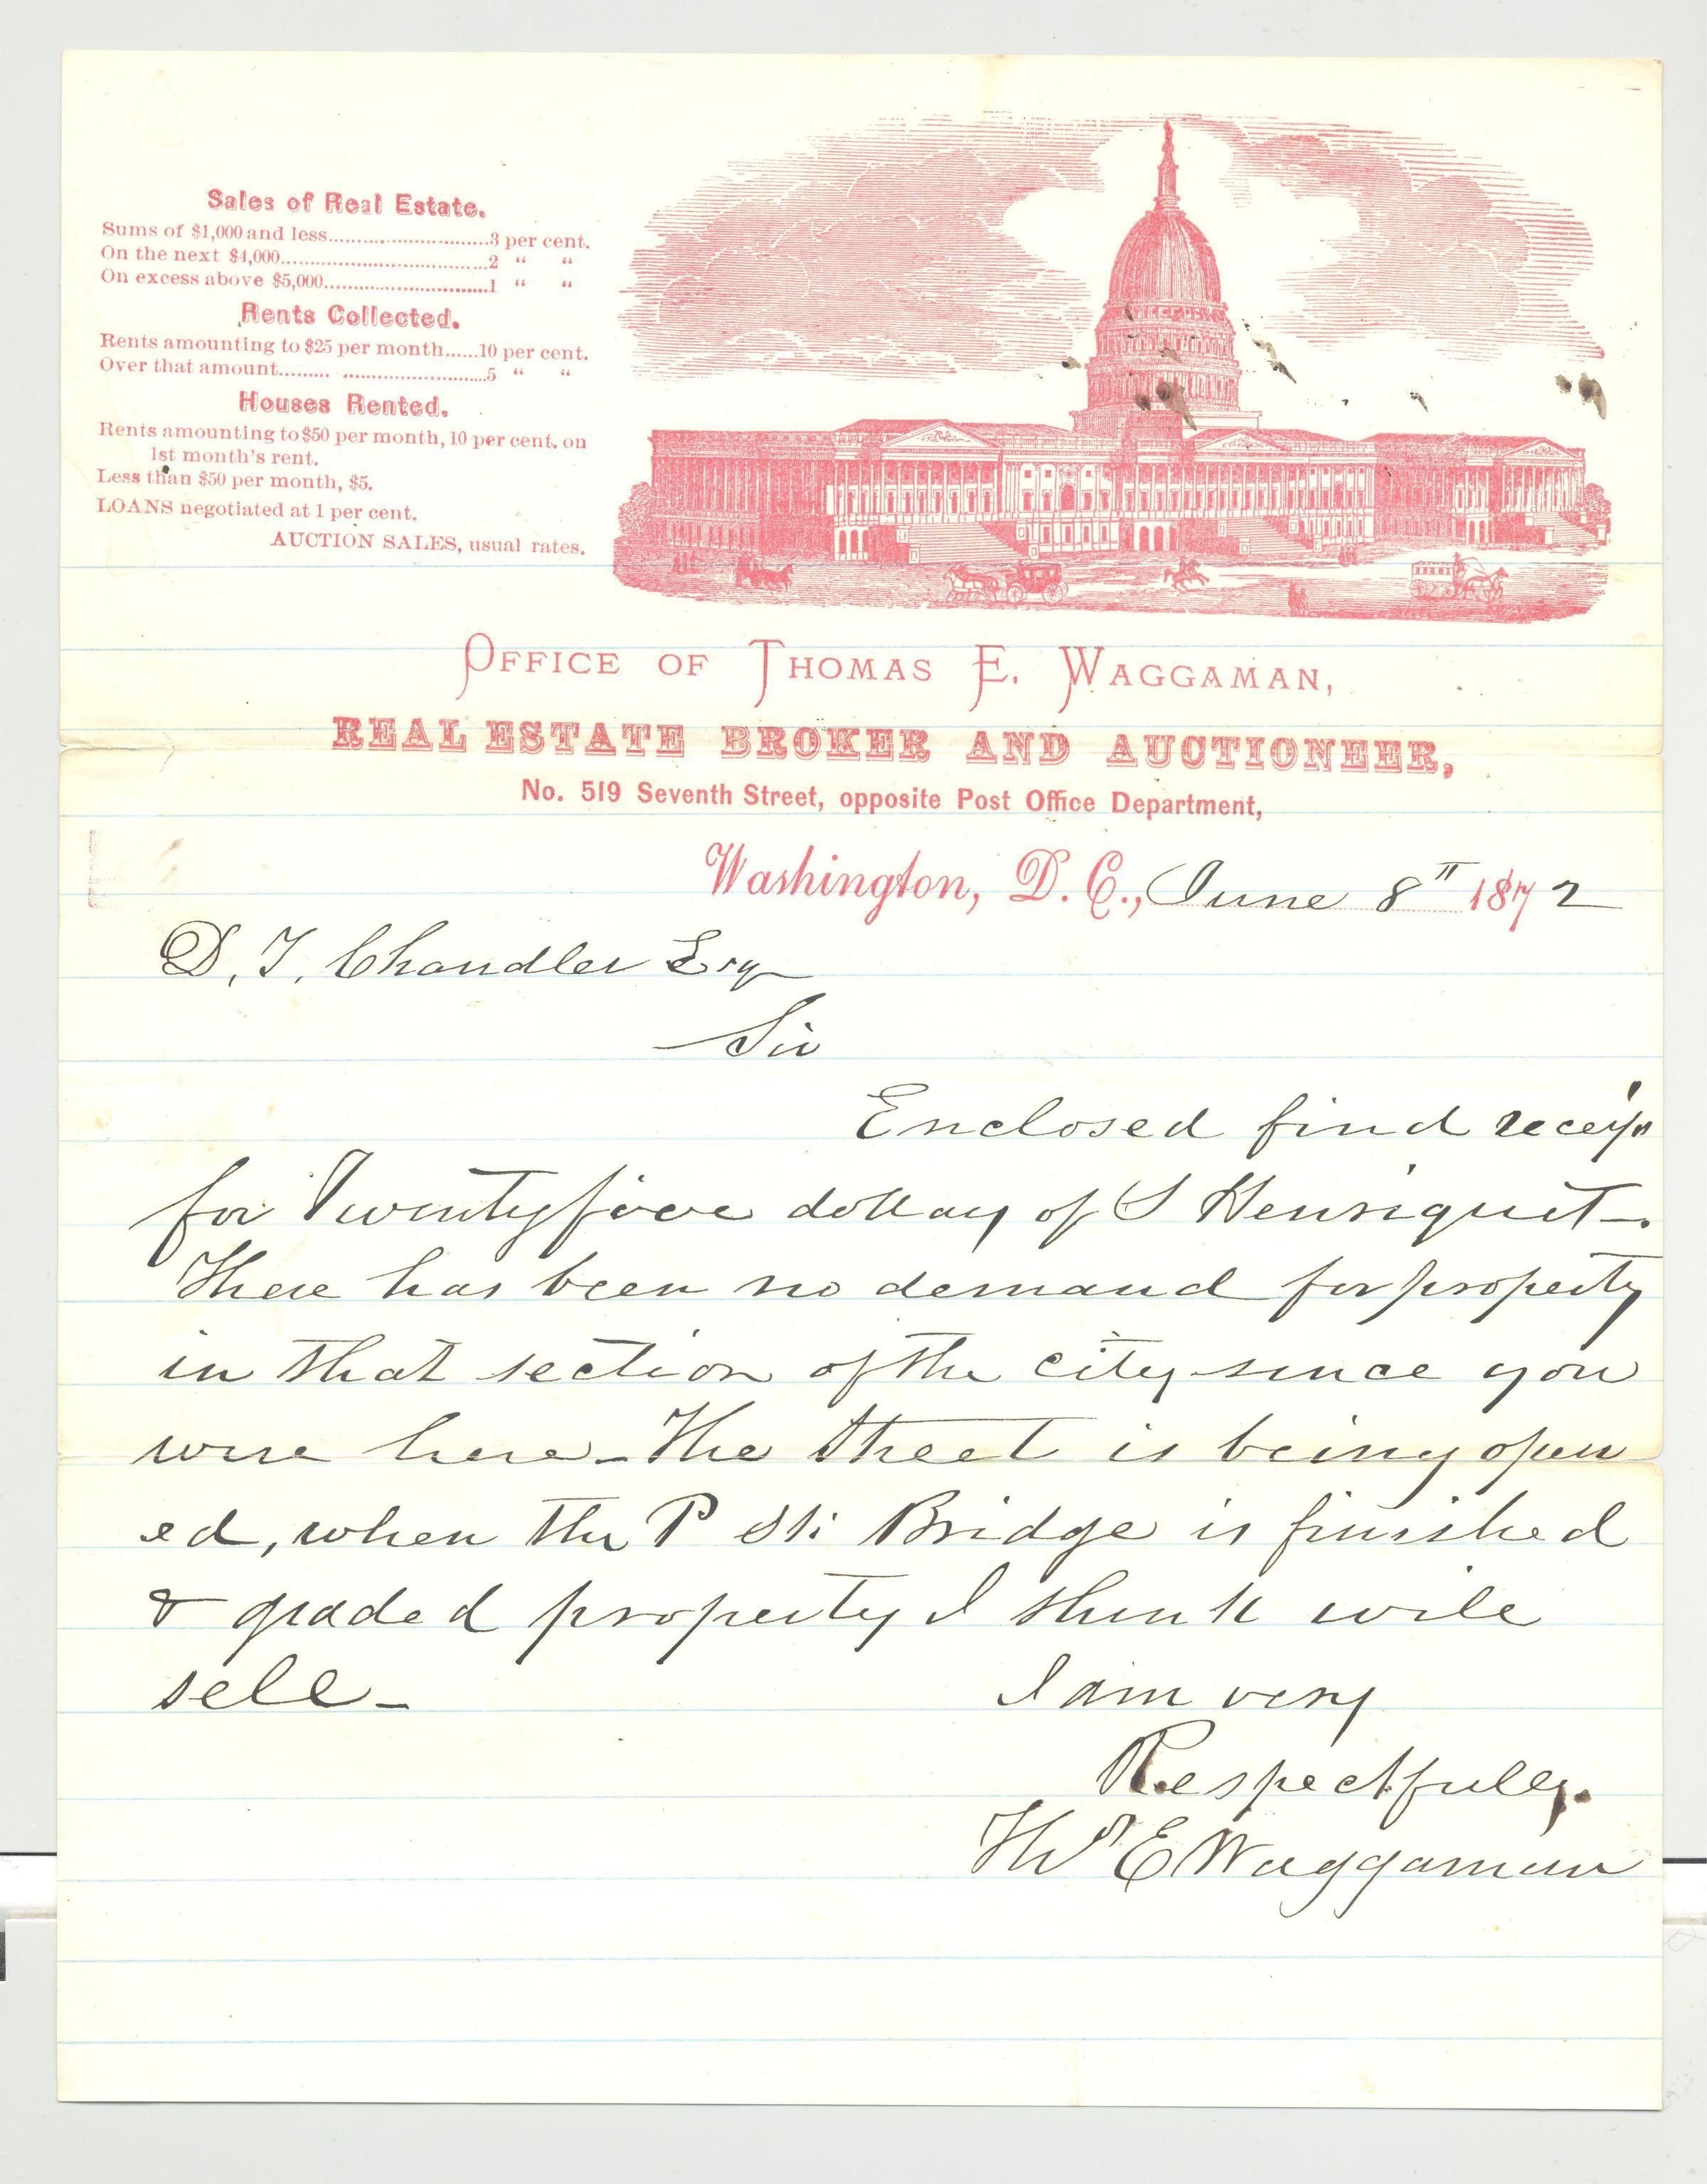 Sales of Real Estate.
Sums of $1,000 and less............................3 per cent.
On the next $4,000....................................2 " "
On excess above $5,000............................1 " "
Rents Collected.
Rents amounting to $25 per month......10 per cent.
Over that amount......... .........................5 " "
Houses Rented.
Rents amounting to $50 per month, 10 per cent. on
1st month's rent.
Less than $50 per month, $5.
LOANS negotiated at 1 per cent.
AUCTION SALES, usual rates.
OFFICE OF THOMAS E. WAGGAMAN,
REAL ESTATE BROKER AND AUCTIONEER,
No. 519 Seventh Street, opposite Post Office Department,
Washington, D. C., June 8" 1872
D. T. Chandler Esq
Sir
Enclosed find
for Twentyfive dollars of S
There has been no demand for property
in that section of the city since you
were here - The Street is being open
ed, when the P St: Bridge is finished
& graded property I think will
sell -
I am very
Respectfully.
Thos E Waggaman